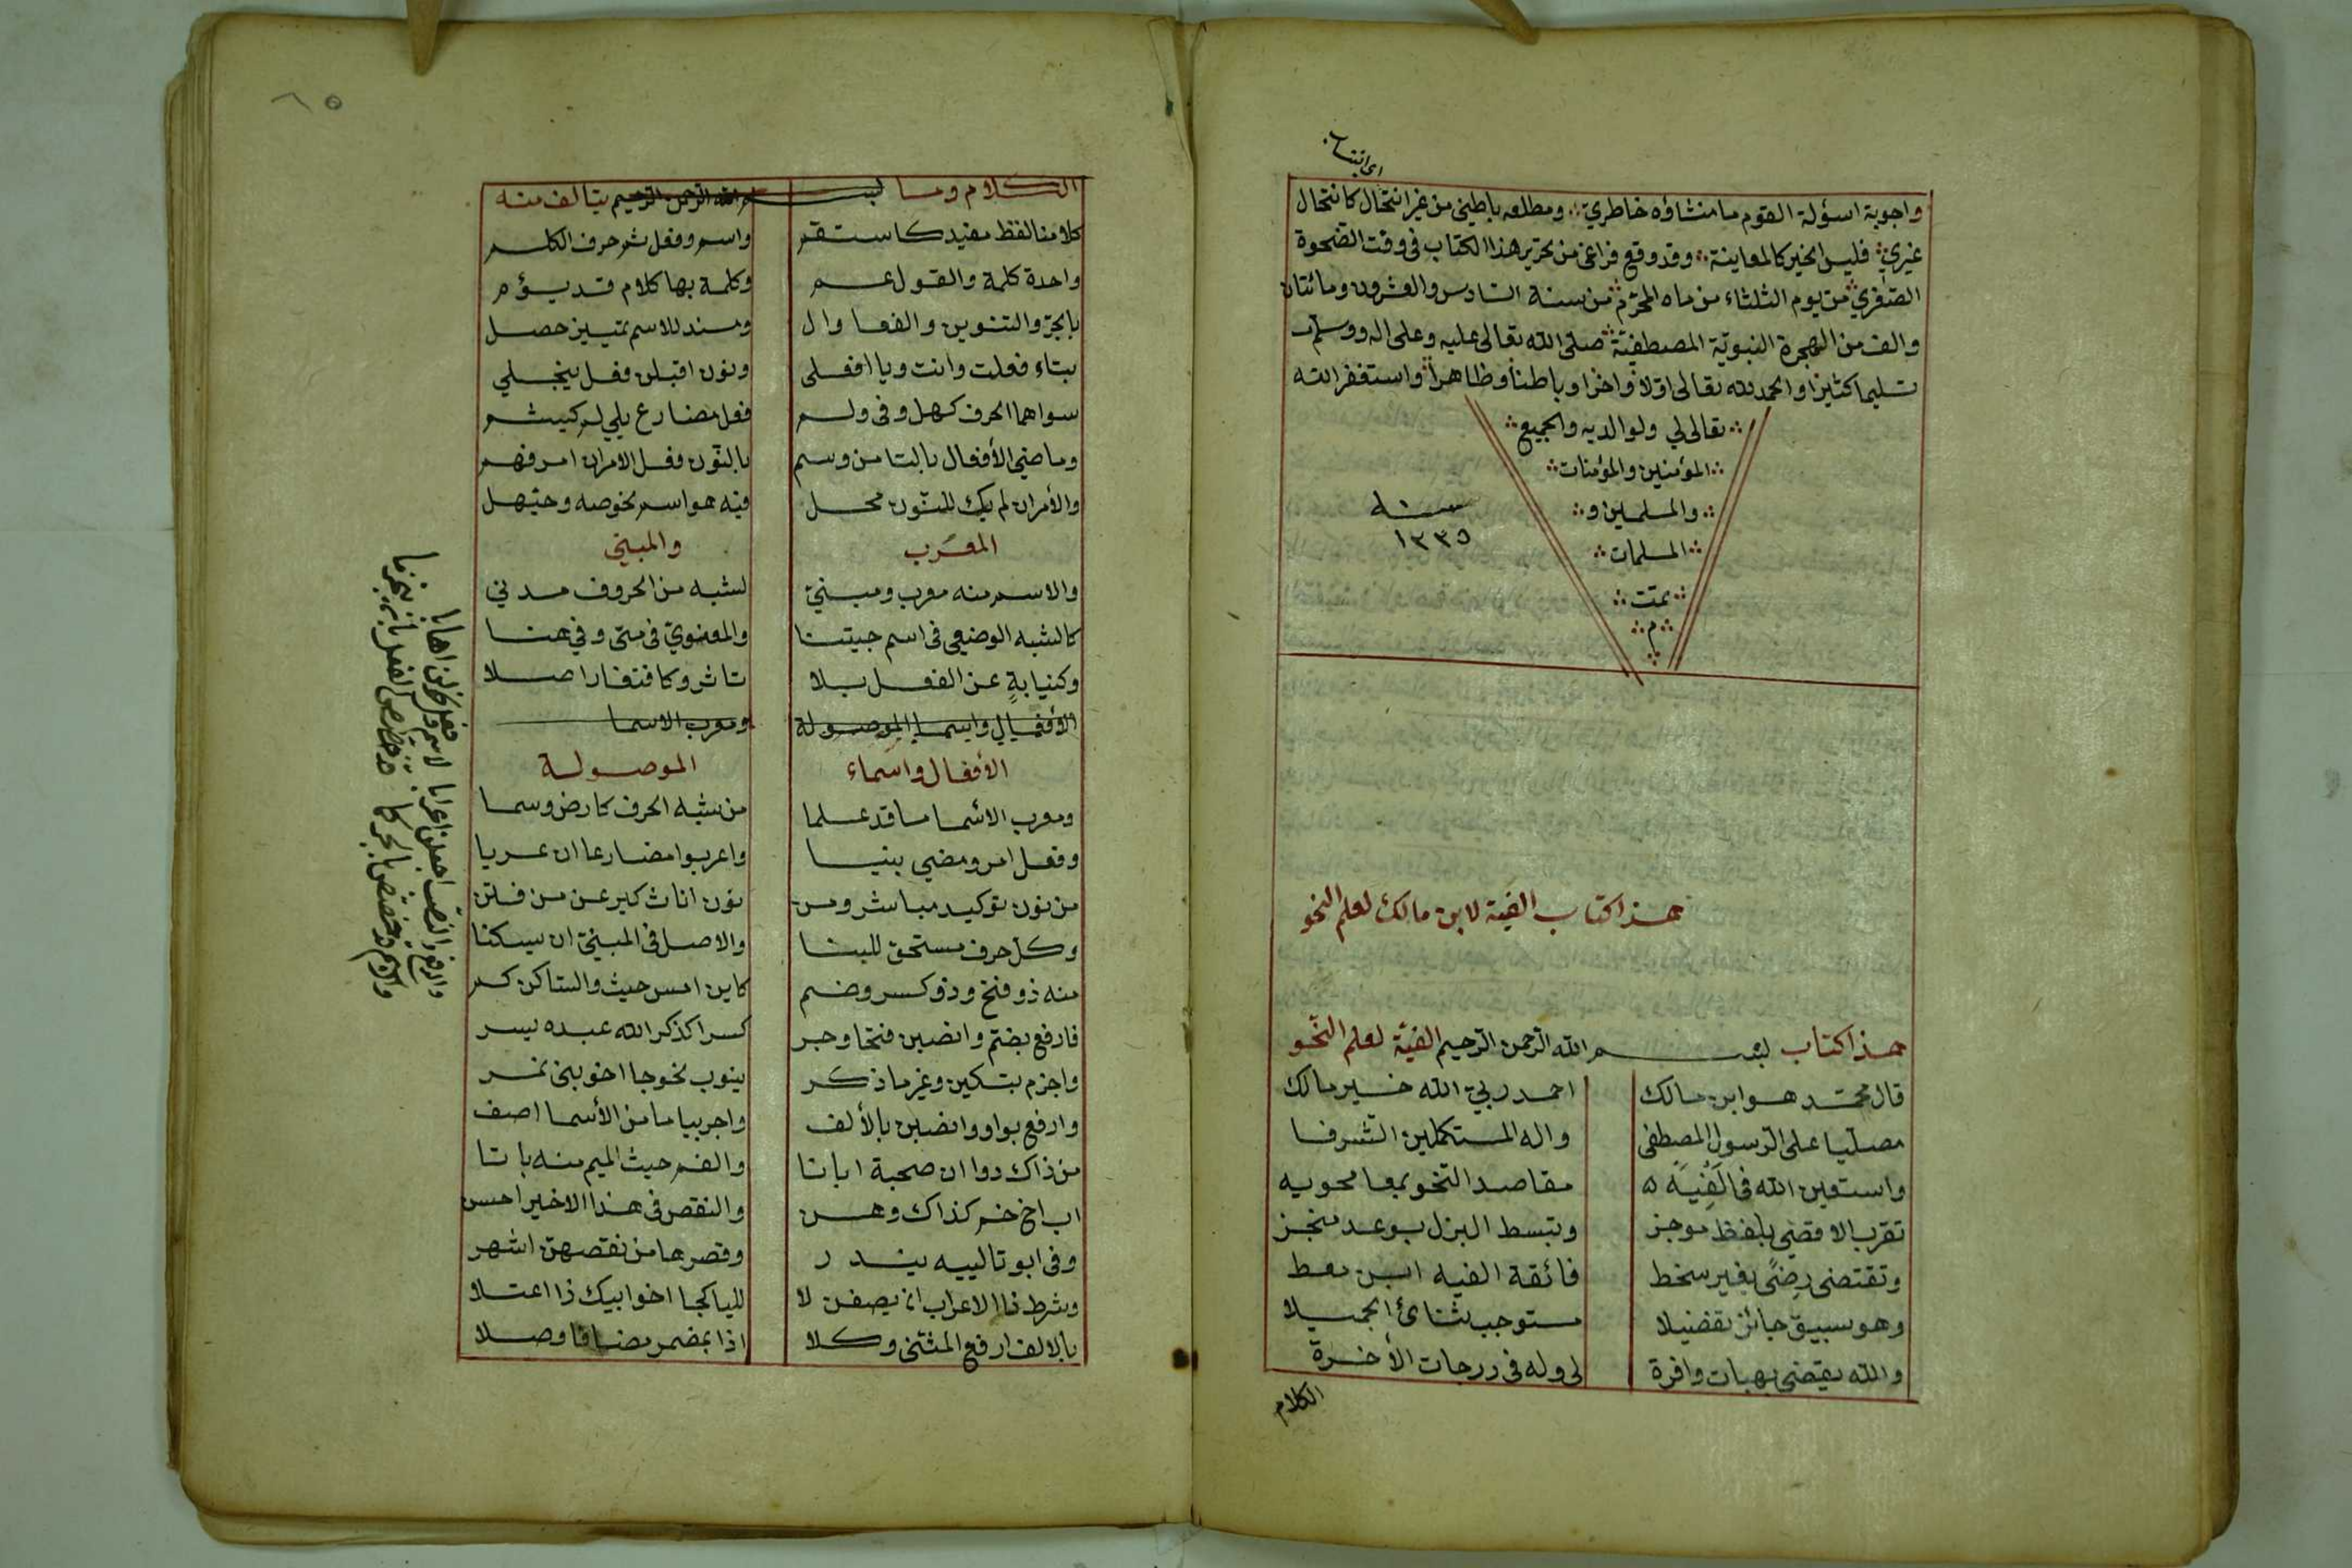 واجوبة اسؤلة القوم ما منشاؤه خاطري ومطلعه باطني من غير انتحال كانتحال
غيري فليس الخبر كالمعاينة وقد وقع فراغي من تحرير هذا الكتاب في وقت الضحوة
الصغري من يوم الثلثاء من ماه المحرّم من سنة السادس والعشرون ومائتان
والف من الهجرة النبويّة المصطفيّة صلى الله تعالى عليه وعلى اله وسلم
تسليما كثيرا والحمد لله تعالى اولا واخرا وباطنا وظاهرا واستغفر الله
تعالى لي ولوالديه والجميع
المؤمنين والمؤمنات
والمسلمين و
المسلمات
تمت
م
سنه
١٢٢٥
هذا كتاب الفية لابن مالك لعلم النحو
هذا كتاب بسم الله الرحمن الرحيم الفية لعلم النحو
قال محمّد هو ابن مالك احمد ربي الله خير مالك
مصليا على الرسول المصطفى واله المستكملين الشرفا
واستعين الله في الفية مقاصد النحو بها محويه
تقرب الاقصى بلفظ موجز وتبسط البزل بوعد منجز
وتقتضى رضى بغير سخط فائقة الفيه ابن معط
وهو بسبق حائز تفضيلا مستوجب ثنائ الجميلا
والله يقضى بهبات وافرة لى وله في درجات الأخرة
الكلام
٦٥
الكلام وما بسم الله الرحمن الرحيم يتالف منه
كلامنا لفظ مفيد كاستقم واسم وفعل ثم حرف الكلم
واحدة كلمة والقول عم وكلمة بها كلام قد يؤم
بالجرّ والتنوين والندا وال ومسند للاسم تمييز حصل
بتاء فعلت واتت ويا افعلى ونون اقبلن فعل ينجلي
سواهما الحرف كهل وفى ولم فعل مضارع يلي لم كيشم
وماضي الأفعال بالتا من وسم بالنّون فعل الامر ان امر فهم
والأمر ان لم يك للنّون محل فيه هو اسم نحو صه وحيّهل
المعرب والمبني
والاسم منه معرب ومبنيّ لشبه من الحروف مدني
كالشبه الوضعى في اسم جيتنا والمعنويّ في متى وفي هنا
وكنيابةٍ عن الفعل بلا تاثر وكافتقار اصلا
الأفعال واسما الموصولة ومعرب الاسما
الأفعال واسماء الموصولة
ومعرب الاسما ما قد علما من شبه الحرف كارض وسما
وفعل امر ومضي بنيا واعربوا مضارعا ان عريا
من نون توكيد مباشر ومن نون اناث كيرعن من فتن
وكل حرف مستحق للبنا والاصل في المبنيّ ان يسكنا
منه ذو فتح وذو كسر وضم كاين امس حيث والساكن كم
فارفع بضم وانصبن فتحا وجر كسرا كذكر الله عبده يسر
واجزم بتسكين وغير ما ذكر ينوب نحو جا اخو بنى نمر
وارفع بواو وانصبن بالألف واجر بيا ما من الأسما اصف
من ذاك ذوا ان صحبة ابانا والفم حيث الميم منه بانا
اب اخ حم كذاك وهن والنقص في هذا الاخير احسن
وفي اب وتالييه يندر وقصرها من نقصهن اشهر
وشرط ذا الاعراب ان يضفن لا لليا كجا اخو ابيك ذا اعتلا
بالالف ارفع المثنى وكلا اذا بمضمر مضافا وصلا
والرفع والنصب اجعلن اعرابا لاسم وفعل نحو لن اهابا
والاسم قد خصص بالجر كما قد خصص الفعل بان ينجزما